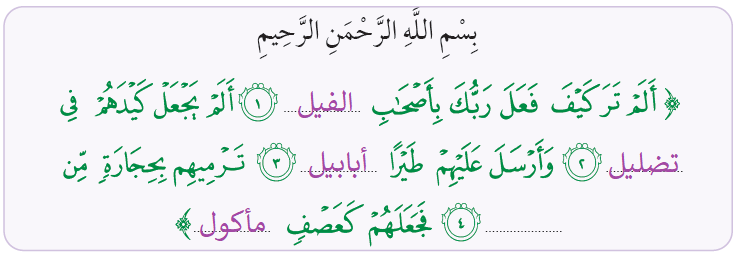 بِسْمِ اللَّهِ الرَّحْمَنِ الرَّحِيمِ
﴿ أَلَمْ تَرَ كَيْفَ فَعَلَ رَبُّكَ بِأَصْحَٰبِ الفيل ١ أَلَمْ يَجْعَلْ كَيْدَهُمْ فِي
تضليل ٢ وَأَرْسَلَ عَلَيْهِمْ طَيْرًا أبابيل ٣ تَرْمِيهِم بِحِجَارَةٍ مِّن
٤ فَجَعَلَهُمْ كَعَصْفٍ مأكول ﴾